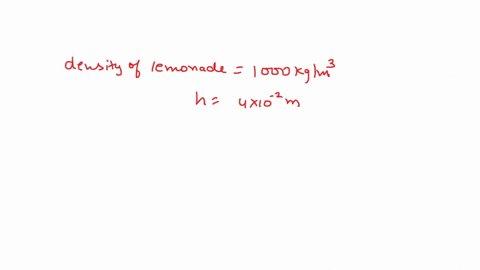 density of lemonade = 1000 kg/m³
h = 4×10⁻² m